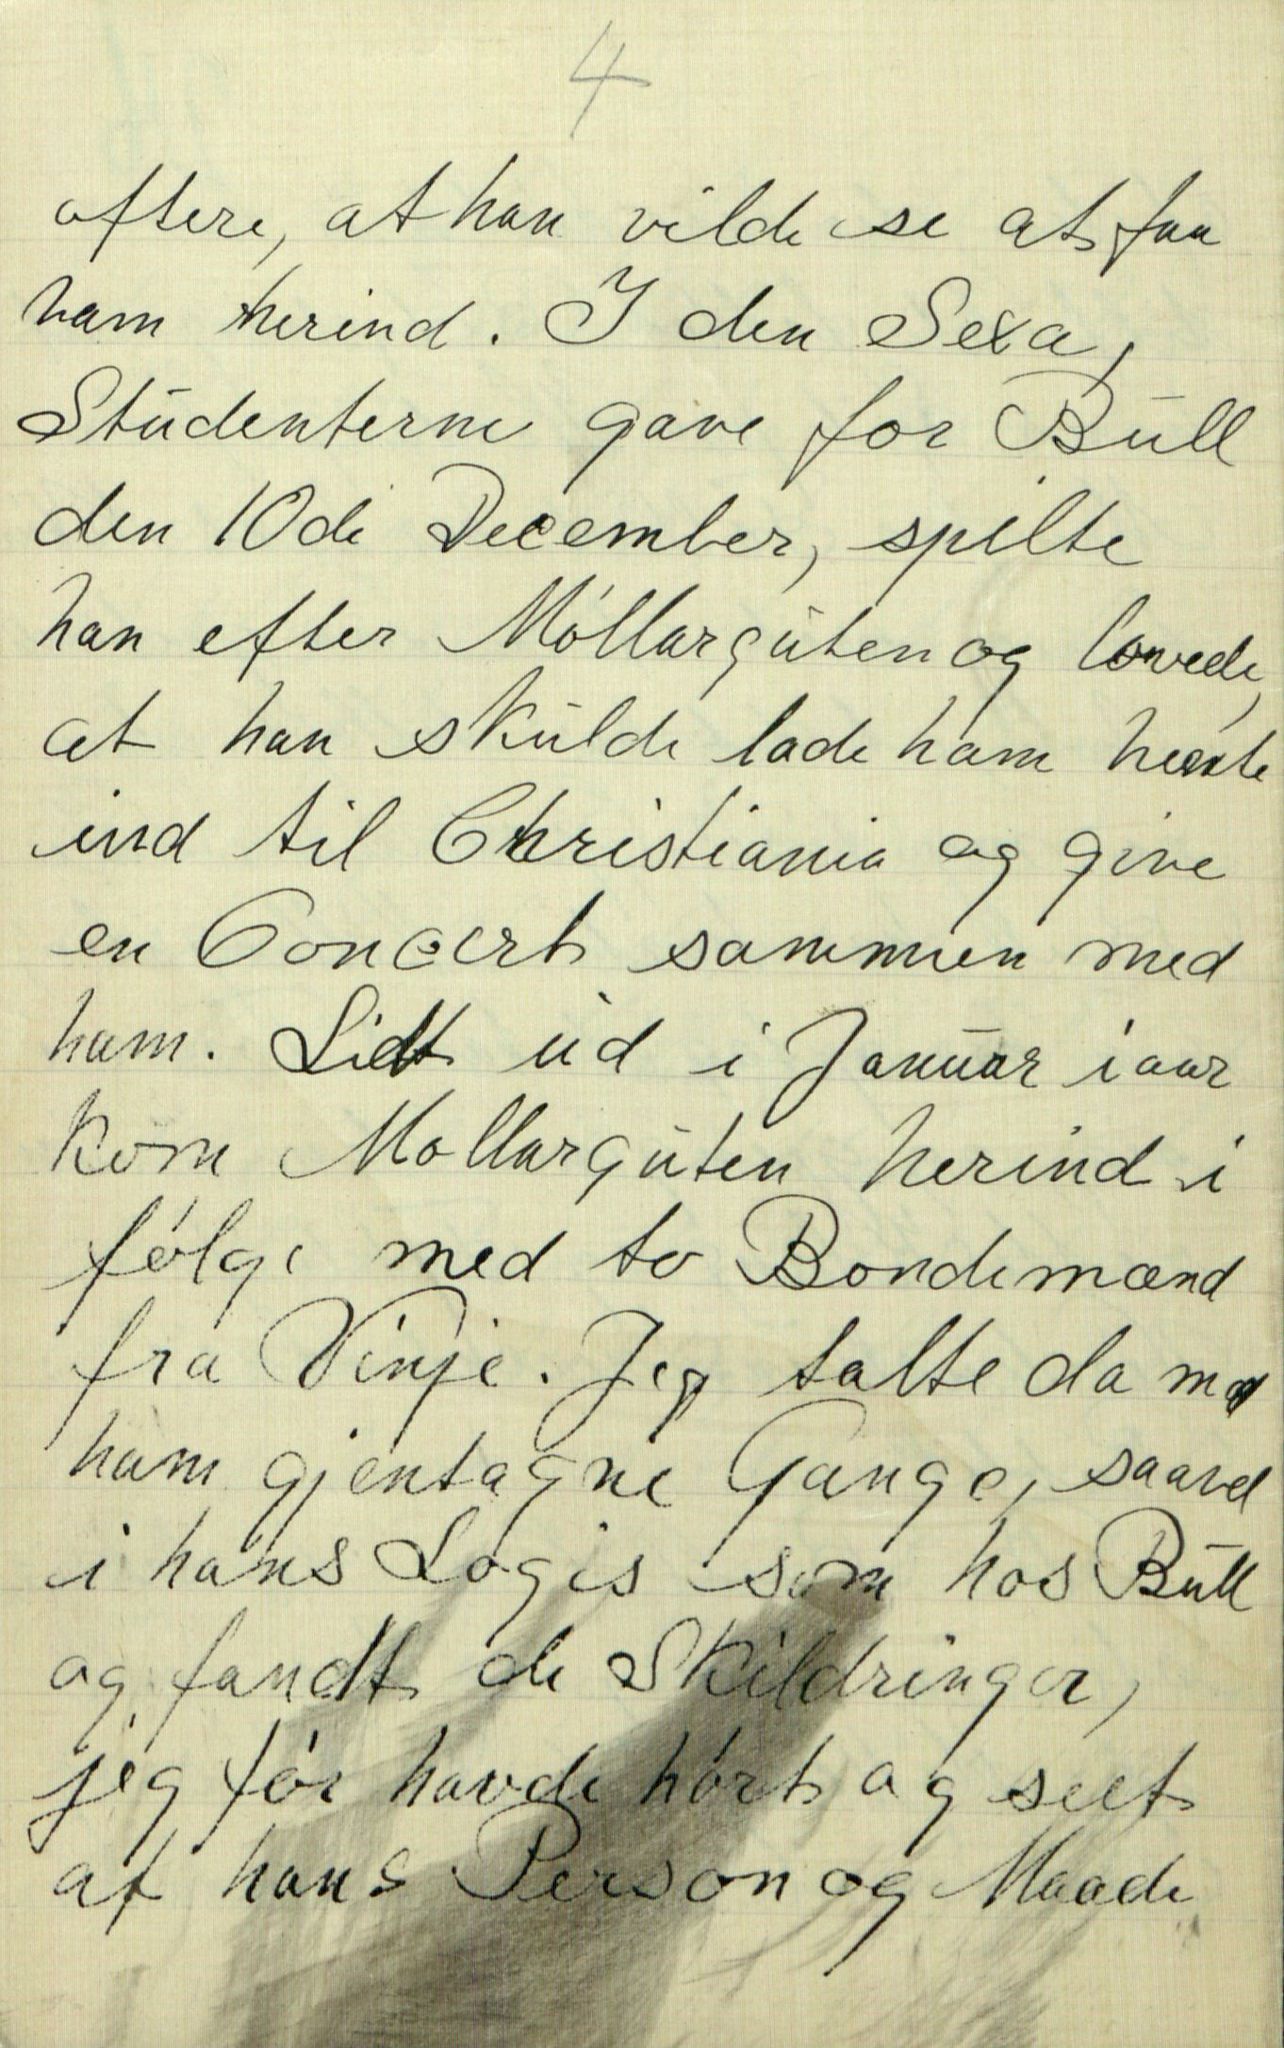 4
oftere, at han vilde se at faa
ham herind. I den Sexa,
Studenterne gave for Bull
den 10de December, spilte
han efter Møllarguten og lovede,
at han skulde lade ham hente
ind til Christiania og give
en Concert sammen med
ham. Lidt ud i Januar iaar
kom Mollarguten herind i
følge med to Bondemænd
fra Vinje. Jeg talte da med
ham gjentagne Gange, saavel
i hans Logis som hos Bull
og fandt de Skildringer,
jeg før havde hørt og seet
af hans Person og Maade